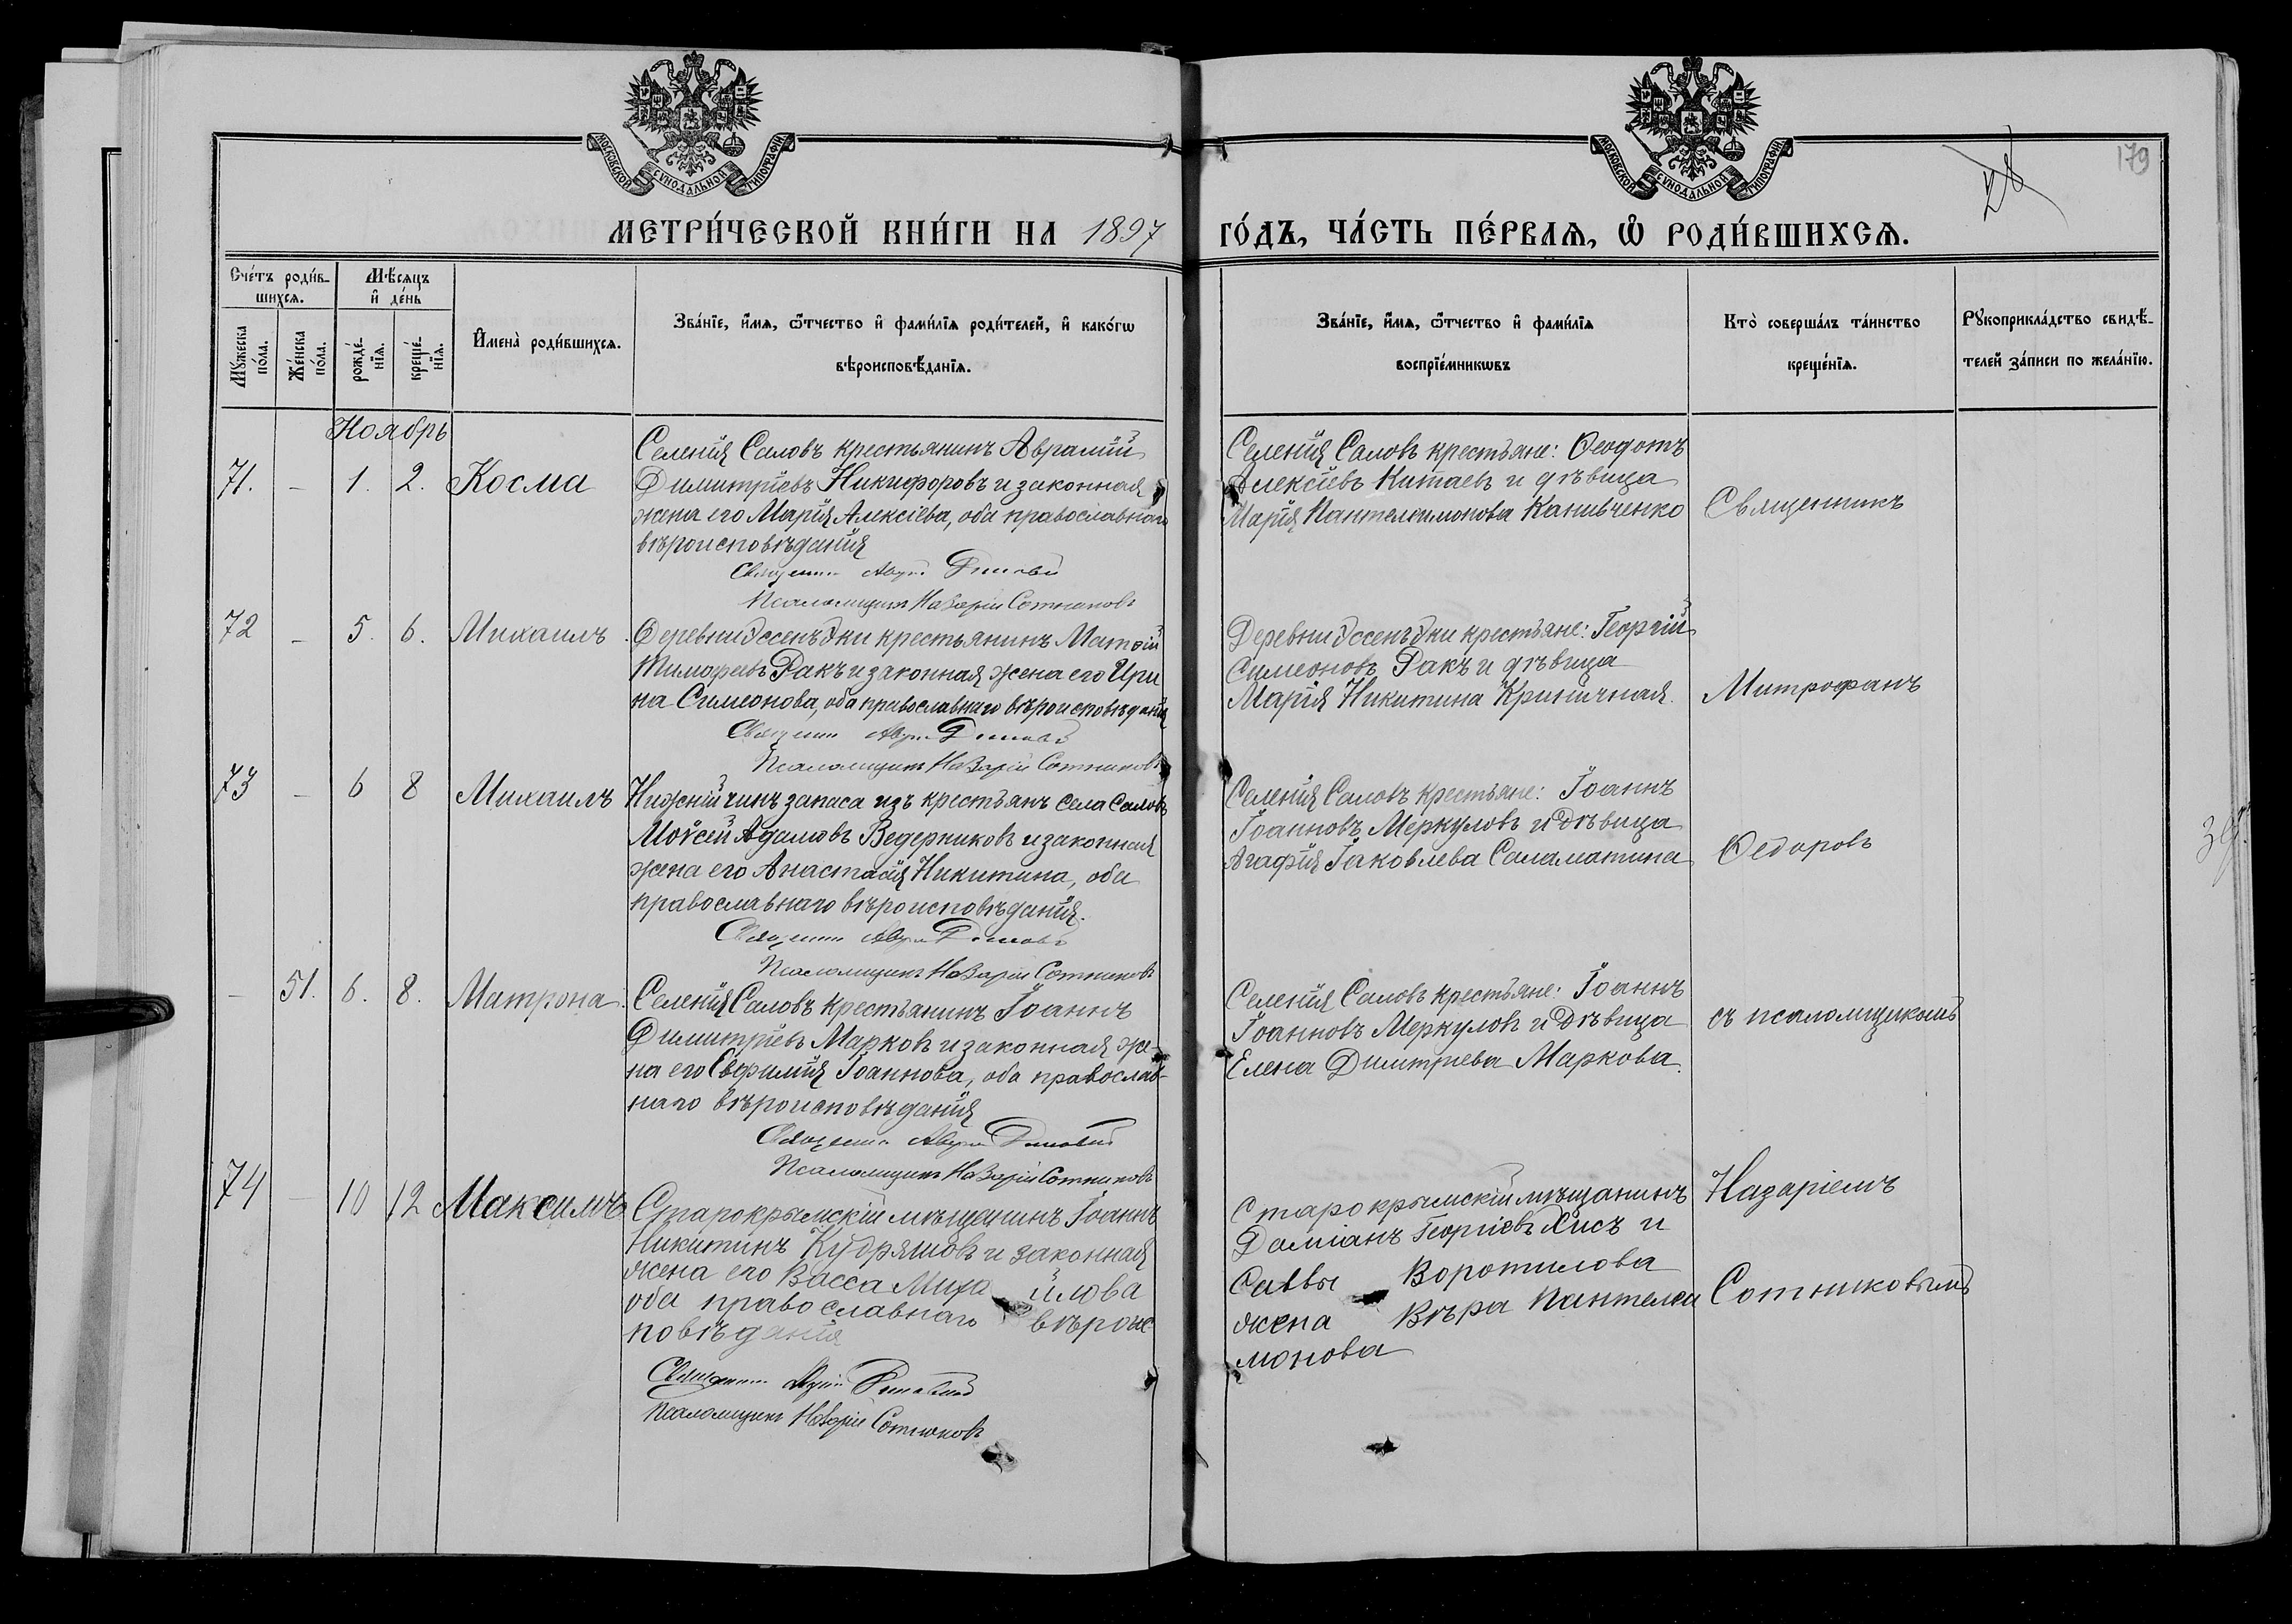 МОСКОВСКОЙ СѴНОДАЛЬНОЙ ТИПОГРАФІИ
МОСКОВСКОЙ СѴНОДАЛЬНОЙ ТИПОГРАФІИ
179
МЕТРИ́ЧЕСКОЙ КНИ́ГИ НА 1897 ГО́ДЪ, ЧА́СТЬ ПЕ́РВАѦ, Ѡ҆ РОДИ́ВШИХСѦ.
Сче́тъ роди́в-
шихсѧ.
Мѣ́сѧцъ
и҆ де́нь
Мꙋ́жеска
по́ла.
Же́нска
по́ла.
рожде́-
нїѧ.
креще́-
нїѧ.
И҆мена̀ роди́вшихсѧ.
Зва́нїе, и҆́мѧ, ѻ҆́тчество и҆ фами́лїѧ роди́телей, и҆ како́гѡ
вѣроисповѣ́данїѧ.
Зва́нїе, и҆́мѧ, ѻ҆́тчество и҆ фами́лїѧ
воспрїе́мникѡвъ
Кто̀ соверша́лъ та́инство
креще́нїѧ.
Рꙋкоприкла́дство свидѣ́-
телей за́писи по жела́нїю.
Ноябрь
71. – 1. 2. Косма
Селенія Саловъ крестьянинъ Аврамій
Димитріевъ Никифоровъ и законная
жена его Марія Алексіева, оба православнаго
вѣроисповѣданія
Священник
Псаломщикъ Назарій Сотниковъ
Селенія Саловъ крестьяне: Ѳеодотъ
Алексіевъ Китаевъ и дѣвица
Марія Пантелеимонова Канивченко
Священникъ
72 – 5. 6. Михаилъ
Деревни крестьянинъ Матѳій
Тимофеевъ Ракъ и законная жена его Ири
на Симеонова, оба православнаго вѣроисповѣданія
Священник
Псаломщикъ Назарій Сотниковъ
Деревни крестьяне: Георгій
Симеоновъ Ракъ и дѣвица
Марія Никитина Криничная.
Митрофанъ
73 – 6 8 Михаилъ
Нижній чинъ запаса изъ крестьянъ села Саловъ
Моѵсей Адамовъ Ведерниковъ и законная
жена его Анастасія Никитина, оба
православнаго вѣроисповѣданія.
Священник
Псаломщикъ Назарій Сотниковъ
Селенія Саловъ крестьяне: Іоаннъ
Іоанновъ Меркуловъ и дѣвица
Агафія Іаковлева Саламатина
Ѳедоровъ
– 51. 6. 8. Матрона
Селенія Саловъ крестьянинъ Іоаннъ
Димитріевъ Марковъ и законная же-
на его Евфимія Іоаннова, оба православ-
наго вѣроисповѣданія
Священник
Псаломщикъ Назарій Сотниковъ
Селенія Саловъ крестьяне: Іоаннъ
Іоанновъ Меркуловъ и дѣвица
Елена Димитріева Маркова.
съ псаломщикомъ
74 – 10 12 Максимъ
Старокрымскій мѣщанинъ Іоаннъ
Никитинъ Кудряшовъ и законная
жена его Васса Миха йлова
оба православнаго вѣроис
повѣданія
Священник
Псаломщикъ Назарій Сотниковъ
Старокрымскій мѣщанинъ
Даміанъ Георгіевъ Хисъ и
Саввы Воротилова
жена Вѣра Пантелеи
монова
Назаріемъ
Сотниковымъ